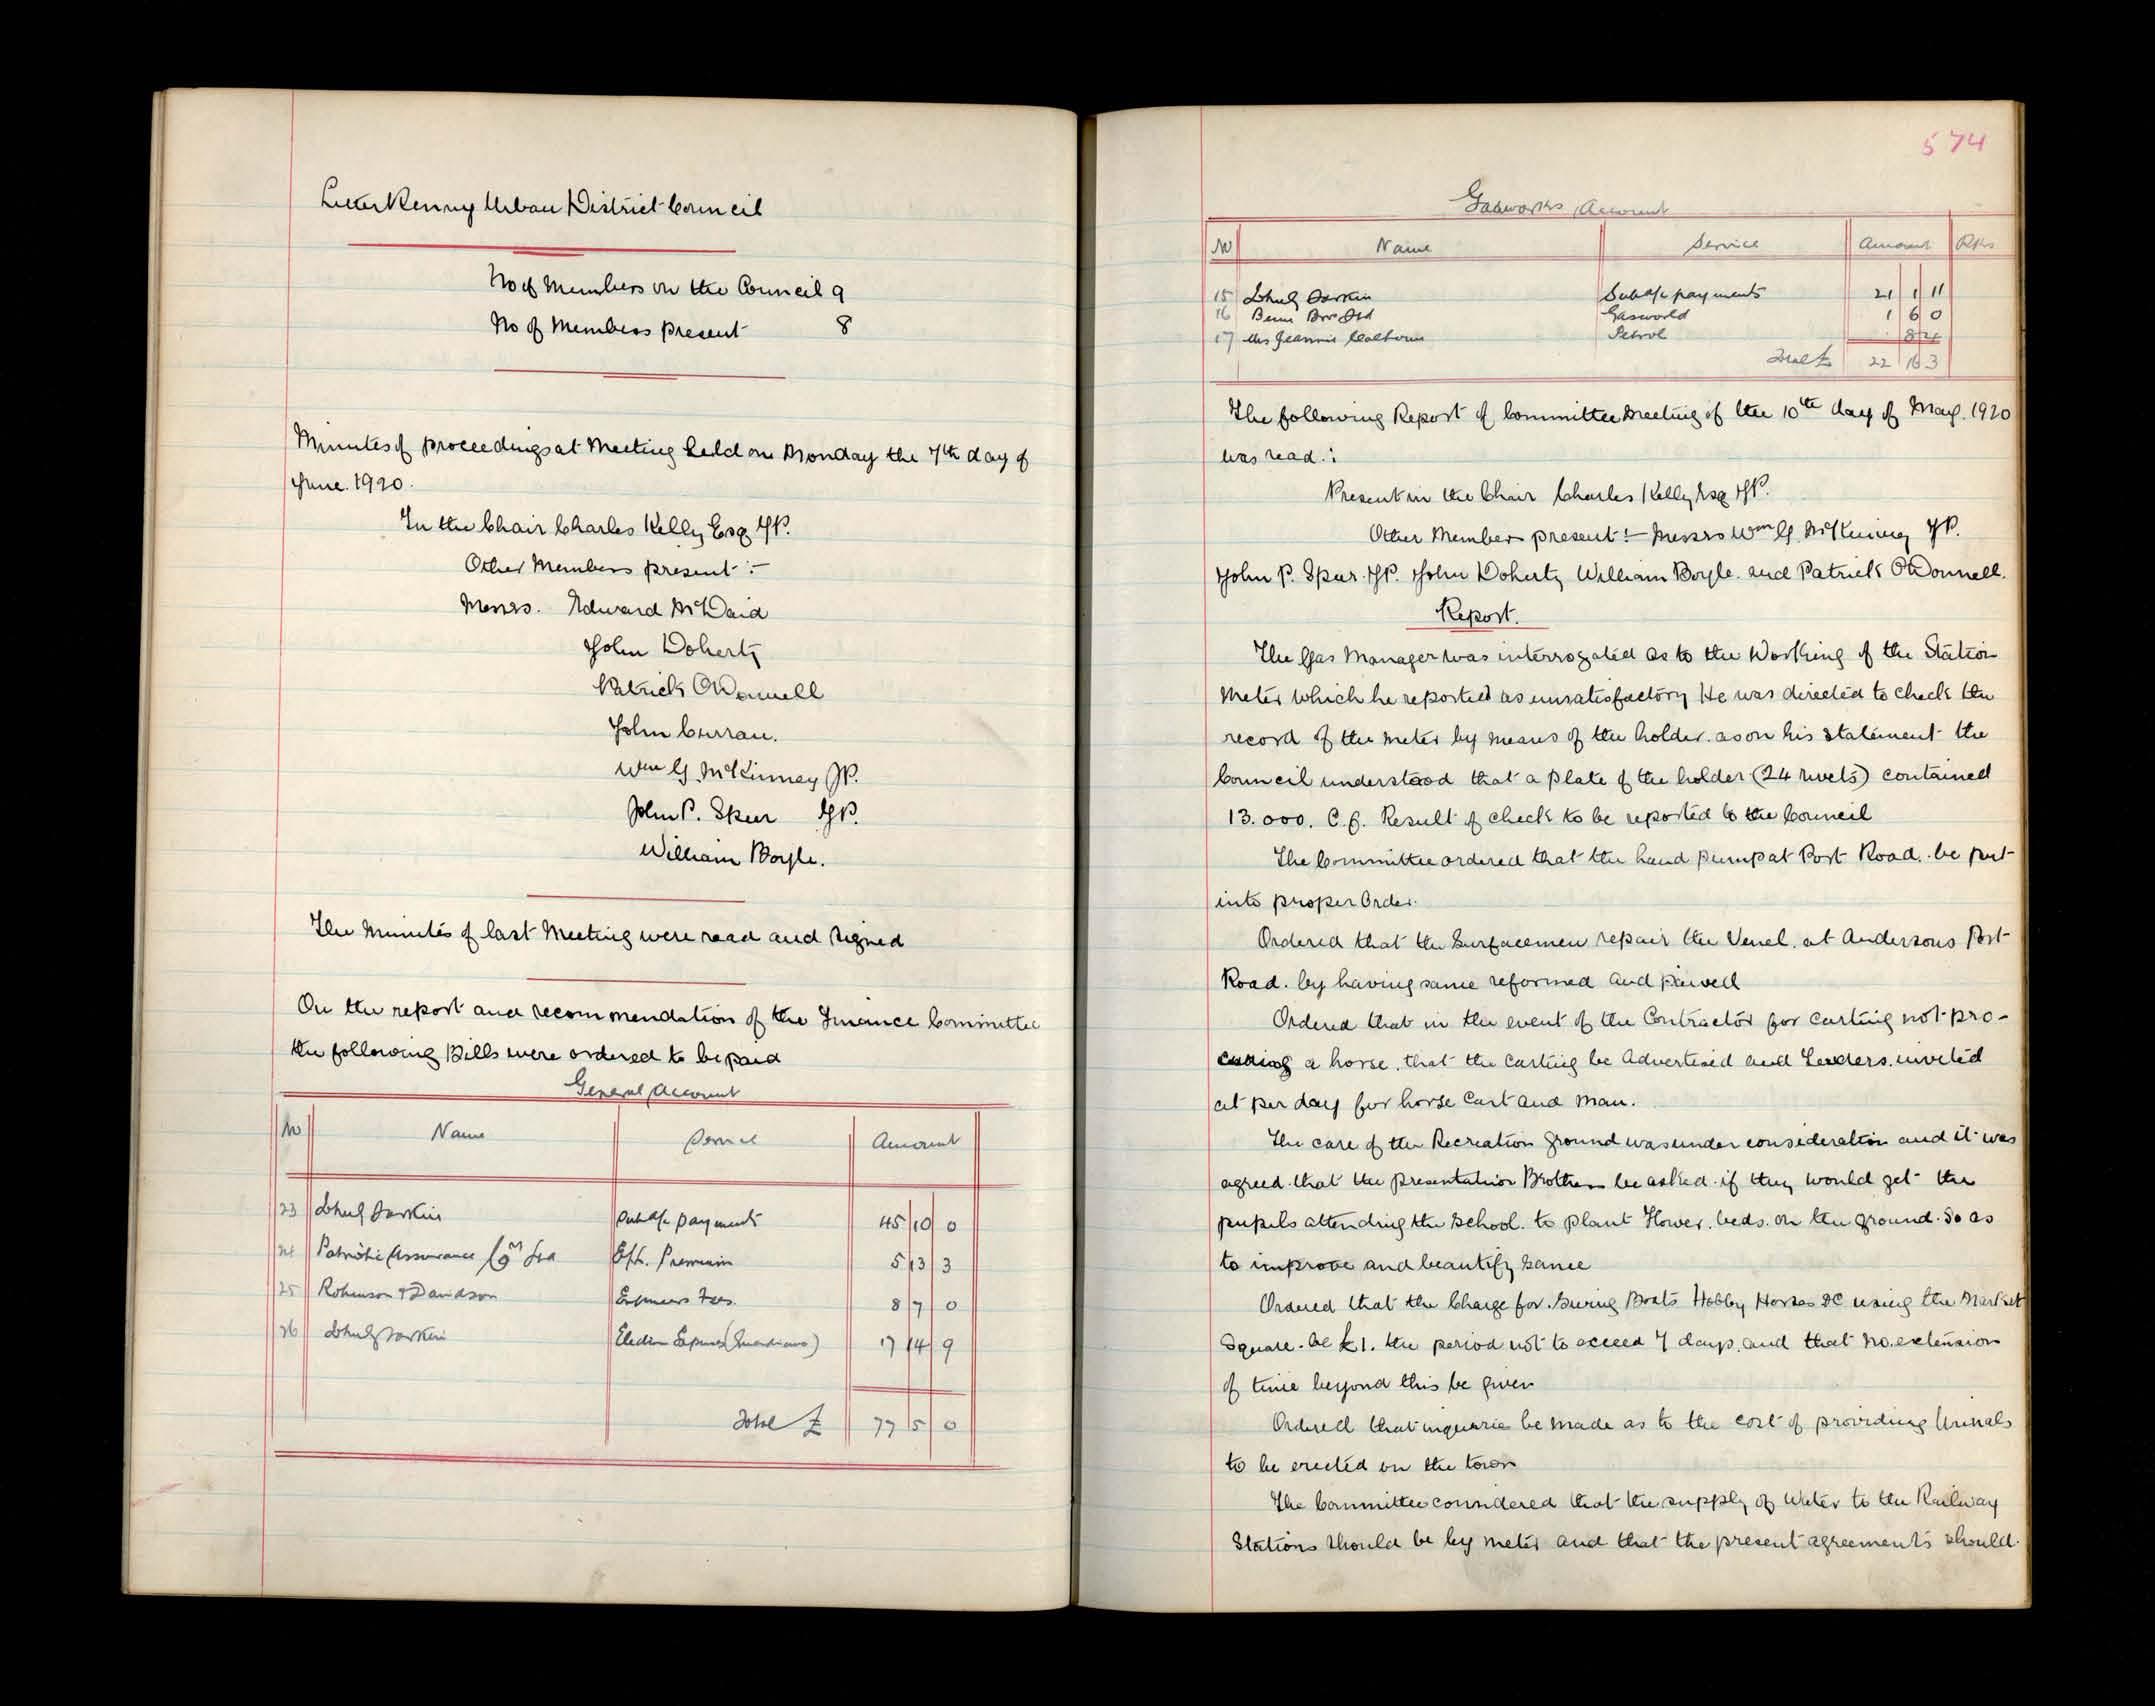 LetterKenny Urban District Council
No of Members on the Council 9
No of Members present 8
Minutes of proceedings at Meeting held on Monday the 7th day of
June. 1920.
In the Chair Charles Kelly Esq JP.
Other Members present :-
Messrs. Edward McDaid
John Doherty
Patrick O'Donnell
John Curran.
Wm G McKinney JP.
John P. Speer JP.
William Boyle.
The Minutes of last Meeting were read and signed
On the report and recommendation of the Finance Committee
the following Bills were ordered to be paid
General Account
No Name Service Amount
23 Larkin payments 45 10 0
24 Patriotic Assurance Coy Ltd Premium 5 13 3
25 Robinson & Davidson Engineers Fees. 8 7 0
26 Larkin Election Expenses (Guardians) 17 14 9
Total £ 77 5 0
574
Gasworks Account
No Name Service Amount Rks
15 Larkin payments 21 1 11
16 Bros Ltd Gasworld 1 6 0
17 Mrs Jeannie Calhoun Petrol 8 4
Total £ 22 16 3
The following Report of Committee Meeting of the 10th day of May. 1920
was read. :
Present in the Chair Charles Kelly Esq JP.
Other Members present :- Messrs Wm G. McKinney JP.
John P. Speer. JP. John Doherty William Boyle. and Patrick O'Donnell.
Report.
The Gas Manager was interrogated as to the Working of the Station
Meter which he reported as unsatisfactory He was directed to check the
record of the meter by means of the holder. as on his statement the
Council understood that a plate of the holder (24 rivets) contained
13.000. C.f. Result of check to be reported to the Council
The Committee ordered that the hand pump at Port Road. be put
into proper Order.
Ordered that the Surfacemen repair the Venel. at Andersons Port
Road. by having same reformed and paved
Ordered that in the event of the Contractor for carting not pro-
curing a horse. that the carting be Advertised and Tenders. invited
at per day for horse Cart and man.
The care of the Recreation ground was under consideration and it was
agreed. that the presentation Brothers be asked. if they would get the
pupils attending the School. to plant Flower. beds. on the ground. So as
to improve and beautify same
Ordered that the Charge for Swing Boats Hobby Horses &C using the Market
Square. be £1. the period not to exceed 7 days. and that no. extension
of time beyond this be given
Ordered that inquirie be made as to the cost of providing Urinals
to be erected on the town
The Committee considered that the supply of Water to the Railway
Stations should be by meter and that the present agreements should.